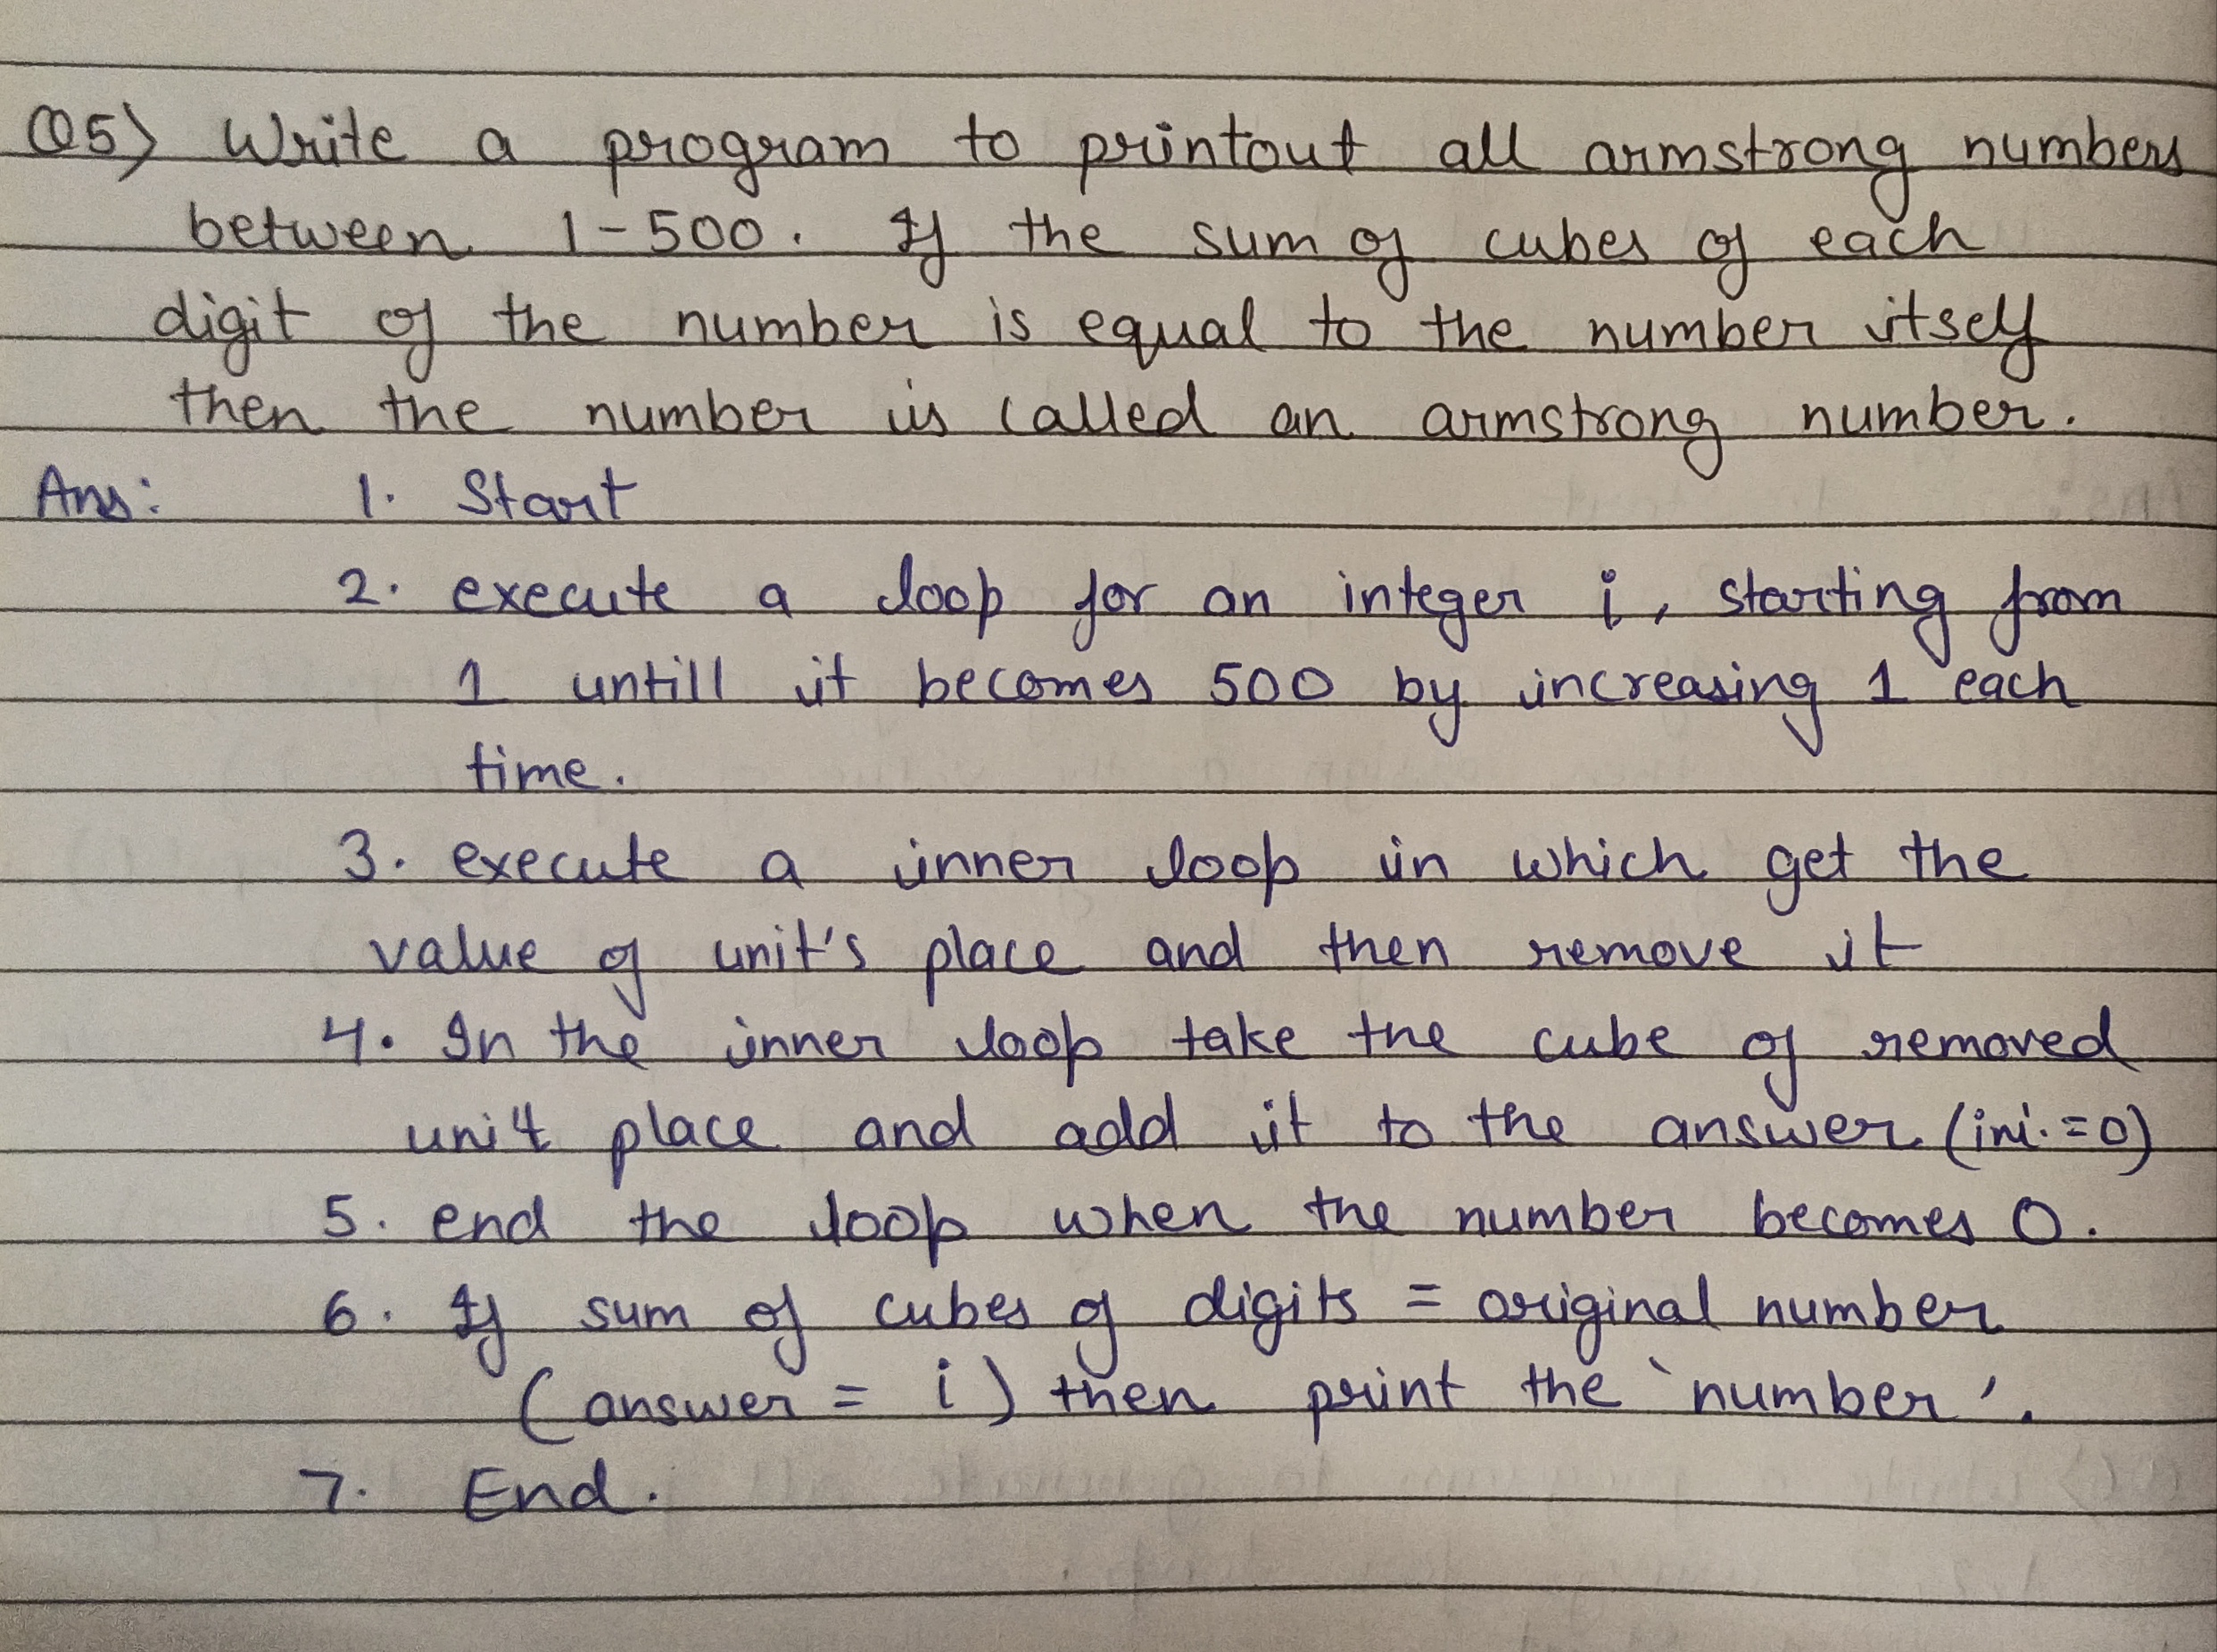 Q5) Write a program to printout all armstrong numbers
between 1-500. If the sum of cubes of each
digit of the number is equal to the number itself
then the number is called an armstrong number.
Ans: 1. Start
2. execute a loop for an integer i, starting from
1 untill it becomes 500 by increasing 1 each
time.
3. execute a inner loop in which get the
value of unit's place and then remove it
4. In the inner loop take the cube of removed
unit place and add it to the answer (ini.=0)
5. end the loop when the number becomes 0.
6. If sum of cubes of digits = original number
(answer = i) then print the 'number'.
7. End.